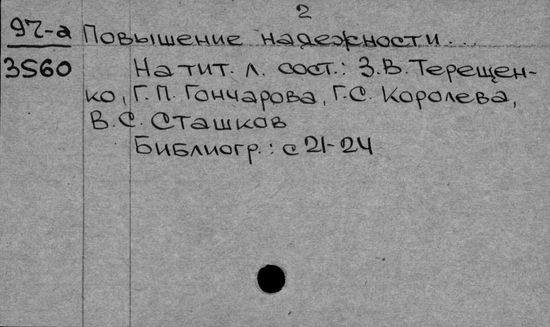 2
97-а Повышение надежности...
3560 На тит. л. сост.: З.В. Терещен-
ко, Г.П. Гончарова, Г.С. Королева,
В.С. Сташков
Библиогр.: с 21-24